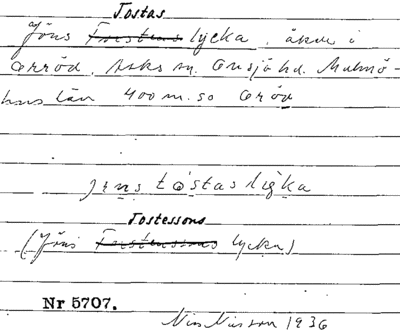 Tostas
Jöns Torstens lycka, åker i
Orröd, Asks sn. Onsjö hd. Malmö-
hus län 400 m. so Oröd
jens tóstas lıǵka
Tostessons
(Jöns lycka)
Nr 5707.
Nils Nilsson 1936